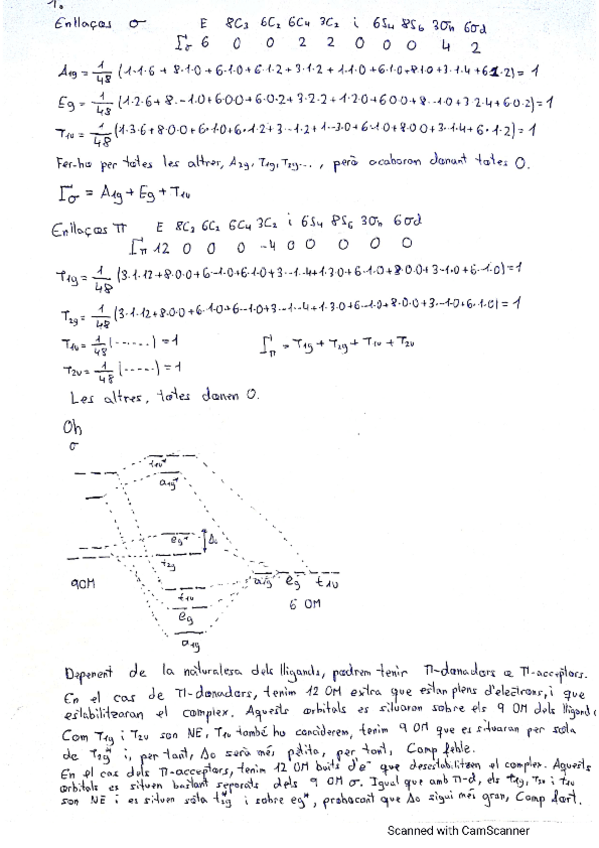 1.
Enllaços σ E 8C3 6C2 6C4 3C2 i 6S4 8S6 3σh 6σd
Γσ 6 0 0 2 2 0 0 0 4 2
A1g = 1/48 (1·1·6 + 8·1·0 + 6·1·0 + 6·1·2 + 3·1·2 + 1·1·0 + 6·1·0 + 8·1·0 + 3·1·4 + 6·1·2) = 1
Eg = 1/48 (1·2·6 + 8·-1·0 + 6·0·0 + 6·0·2 + 3·2·2 + 1·2·0 + 6·0·0 + 8·-1·0 + 3·2·4 + 6·0·2) = 1
T1u = 1/48 (1·3·6 + 8·0·0 + 6·1·0 + 6·1·2 + 3·-1·2 + 1·-3·0 + 6·-1·0 + 8·0·0 + 3·1·4 + 6·1·2) = 1
Fer-ho per totes les altres, A2g, T1g, T2g..., però acabaran donant totes 0.
Γσ = A1g + Eg + T1u
Enllaços π E 8C3 6C2 6C4 3C2 i 6S4 8S6 3σh 6σd
Γπ 12 0 0 0 -4 0 0 0 0 0
T1g = 1/48 (3·1·12 + 8·0·0 + 6·-1·0 + 6·1·0 + 3·-1·-4 + 1·3·0 + 6·1·0 + 8·0·0 + 3·-1·0 + 6·-1·0) = 1
T2g = 1/48 (3·1·12 + 8·0·0 + 6·1·0 + 6·-1·0 + 3·-1·-4 + 1·3·0 + 6·-1·0 + 8·0·0 + 3·-1·0 + 6·1·0) = 1
T1u = 1/48 (······) = 1 Γπ = T1g + T2g + T1u + T2u
T2u = 1/48 (·····) = 1
Les altres, totes donen 0.
Oh
σ
t1u*
a1g*
eg* Δo
t2g
9 OM
a1g eg t1u
t1u
6 OM
eg
a1g
Depenent de la naturalesa dels lligands, podrem tenir π-donadors o π-acceptors.
En el cas de π-donadors, tenim 12 OM extra que estan plens d'electrons, i que
estabilitzaran el complex. Aquests orbitals es situaran sobre els 9 OM dels lligand
Com T1g i T2u son NE, T1u també ho considerem, tenim 9 OM que es situaran per sota
de T2g* i, per tant, Δo serà més petita, per tant, Camp feble.
En el cas dels π-acceptors, tenim 12 OM buits d'e- que desestabilitzen el complex. Aquests
orbitals es situen bastant separats dels 9 OM σ. Igual que amb π-d, els t1g, t2u i t1u
son NE i es situen sota t2g* i sobre eg*, provocant que Δo sigui més gran, Camp fort.
Scanned with CamScanner